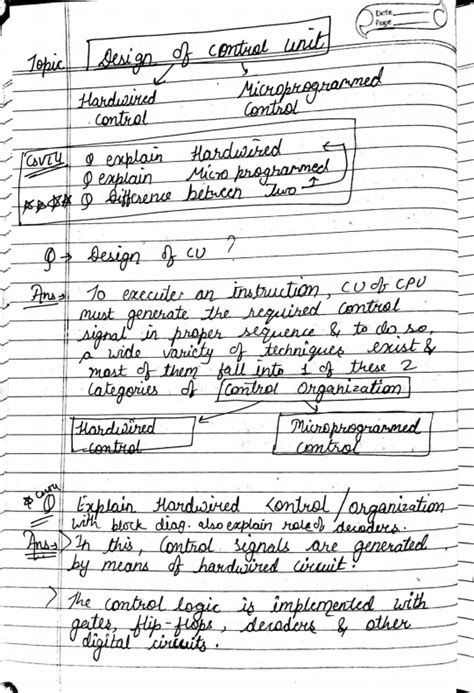 Date
Page
Topic Design of control unit
Hardwired control
Microprogrammed Control
CSVTU Q explain Hardwired
Q explain Micro programmed
Q Difference between Two
Q → Design of CU ?
Ans → To execute an instruction, CU of CPU
must generate the required control
signal in proper sequence & to do so,
a wide variety of techniques exist &
most of them fall into 1 of these 2
Categories of Control Organization
Hardwired control
Microprogrammed control
CSVTU
Q Explain Hardwired Control / Organization
with block diag. also explain role of decoders.
Ans → In this, Control signals are generated
by means of hardwired circuit.
The control logic is implemented with
gates, flip-flops, decoders & other
digital circuits.